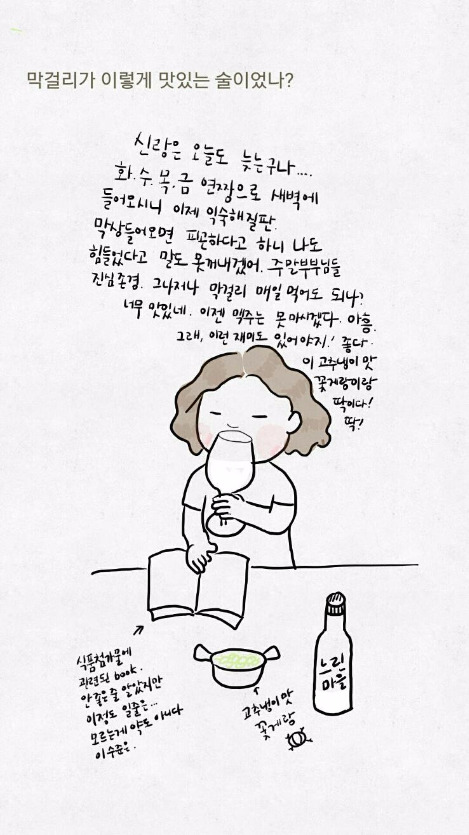 막걸리가 이렇게 맛있는 술이었나?
신랑은 오늘도 늦는구나....
화.수.목.금 연짱으로 새벽에
들어오시니 이제 익숙해질판.
막상들어오면 피곤하다고 하니 나도
힘들었다고 말도 못꺼내겠어. 주말부부님들
진심존경. 그나저나 막걸리 매일 먹어도 되나?
너무 맛있네. 이젠 맥주는 못마시겠다. 아흥.
그래, 이런 재미도 있어야지! 좋다.
이 고추냉이 맛
꽃게랑이랑
딱이다!
딱!
식품첨가물에
관련된 book.
안좋은줄 알았지만
이정도 일줄은...
모르는게 약도 아니다
이수준은.
고추냉이 맛
꽃게랑
느린
마을